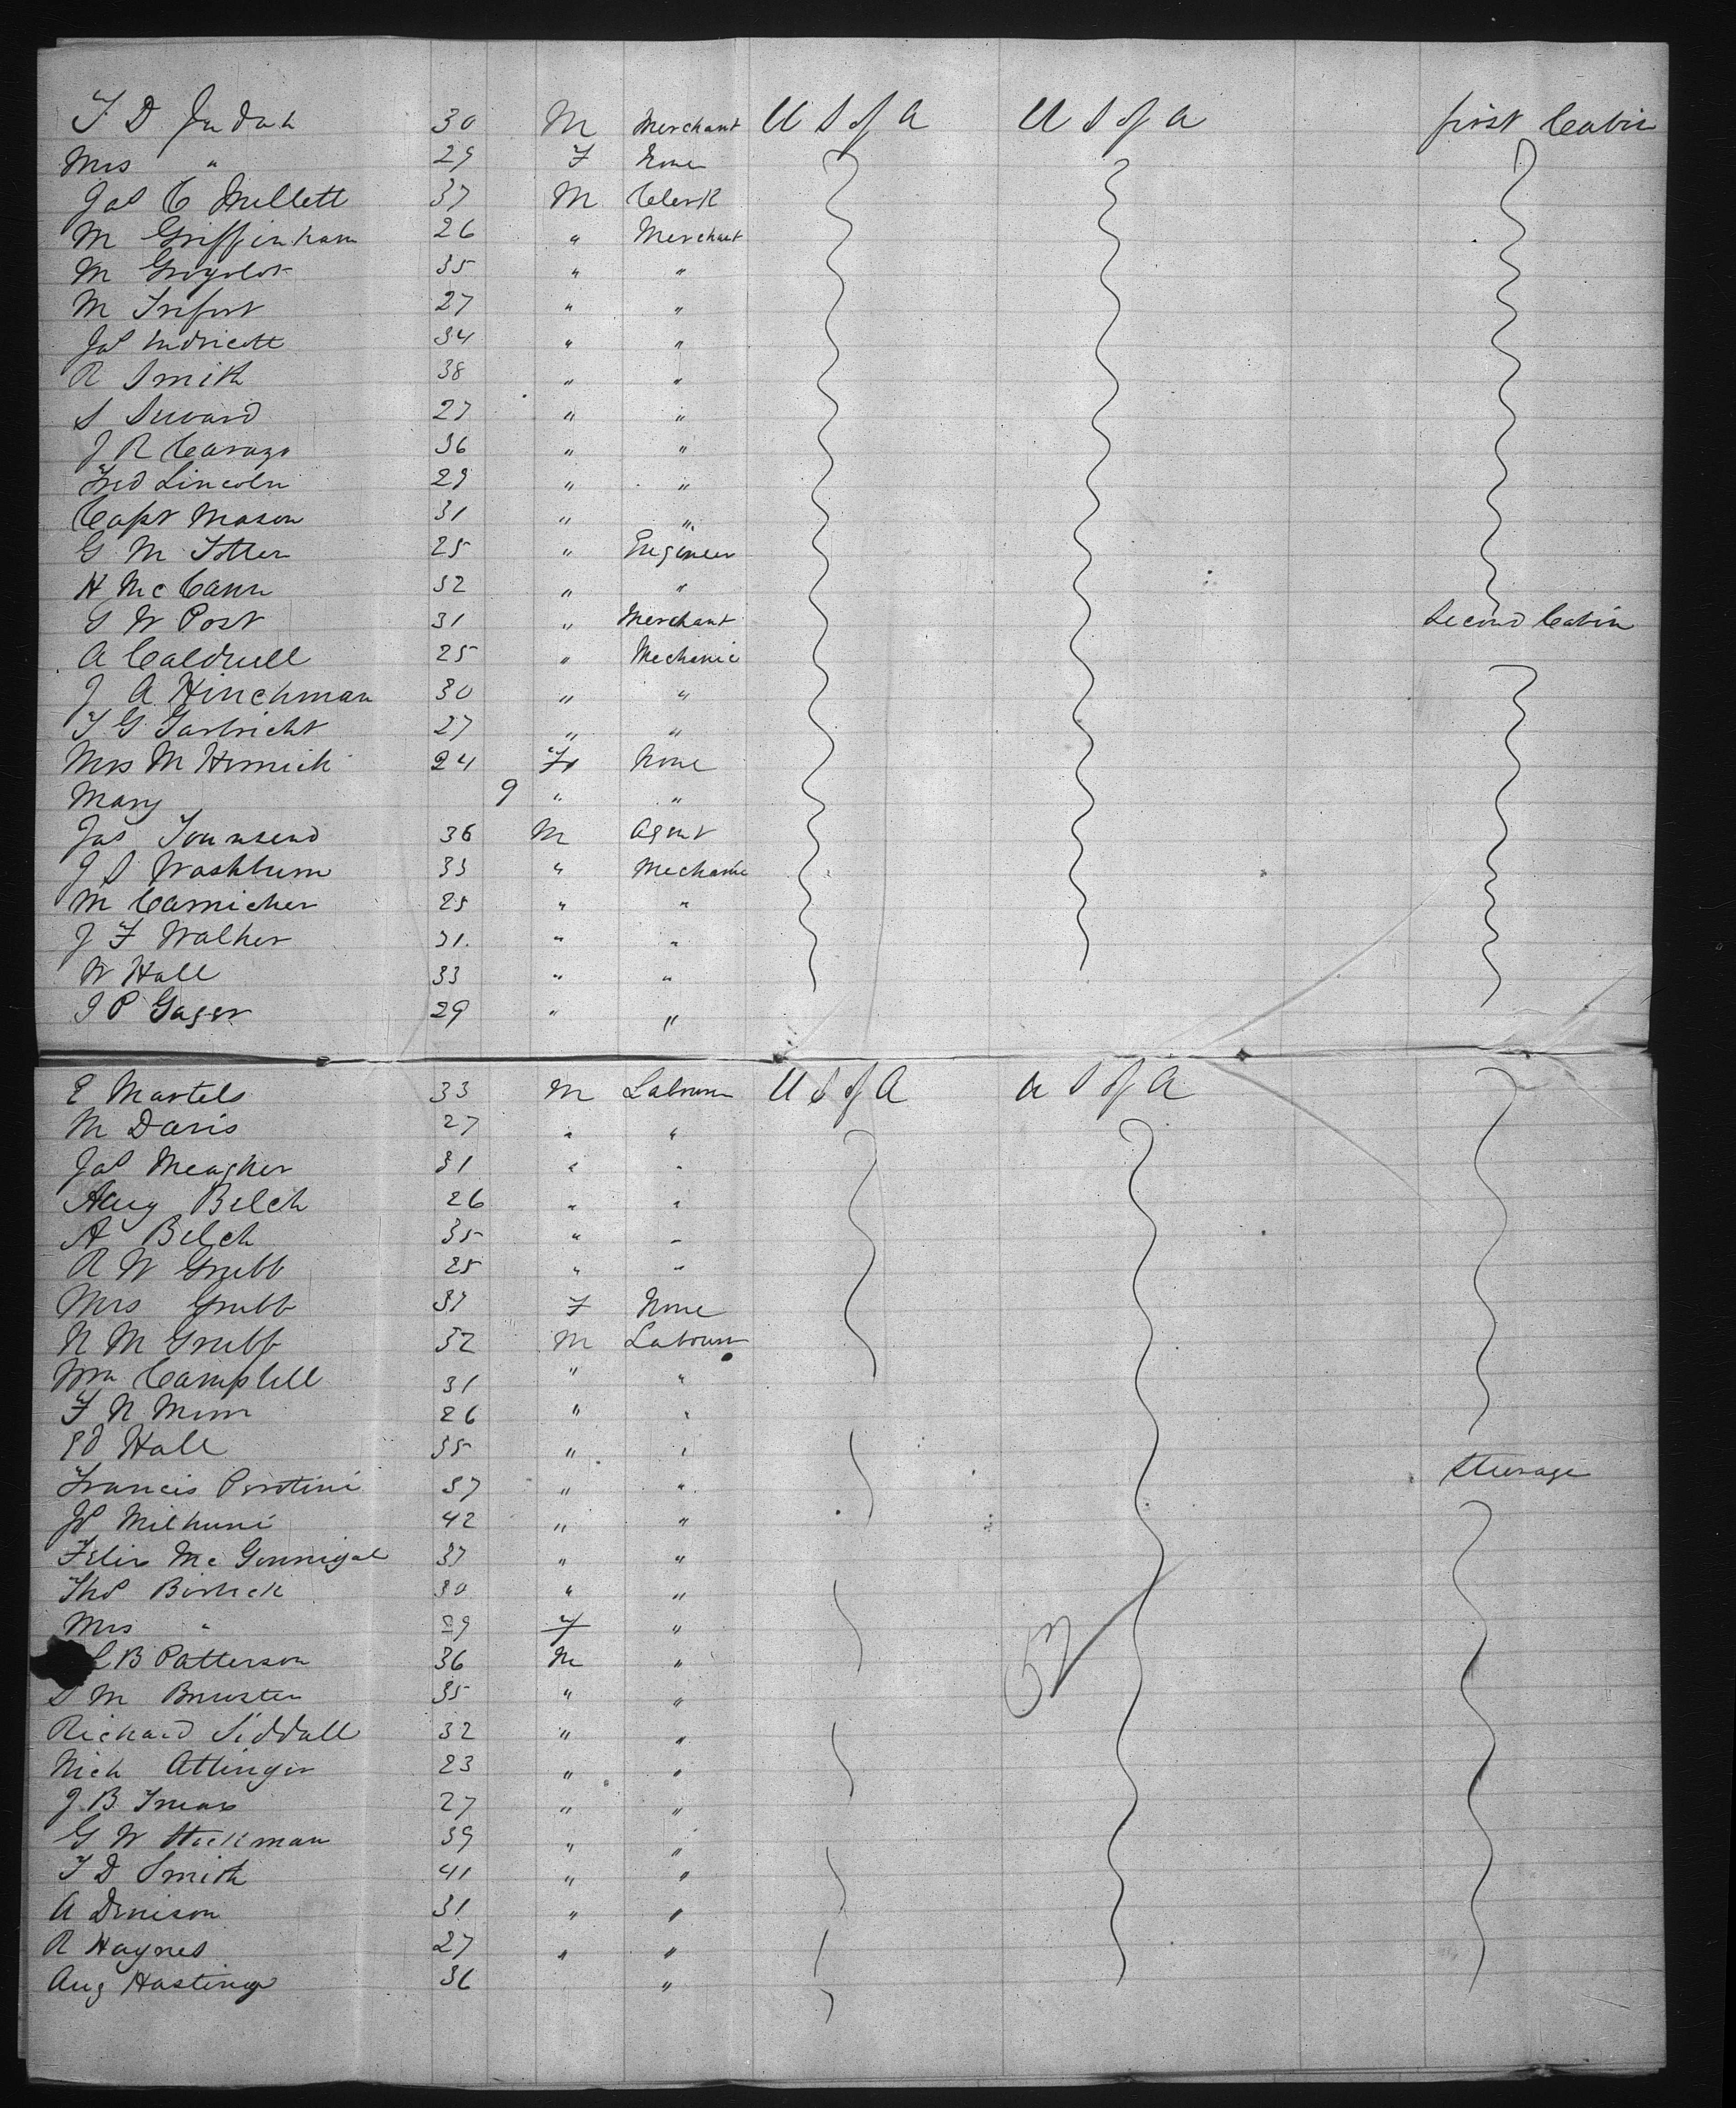 T D Judah 30 M Merchant U S of A U S of A first Cabin
Mrs " 29 F None
Jas C Millett 37 M Clerk
M Griffinham 26 " Merchant
M 35 " "
M Trefort 27 " "
Jas Endricott 34 " "
R Smith 38 " "
S Seward 27 " "
J R Carazo 36 " "
Fred Lincoln 29 " "
Capt Mason 31 " "
G M Totten 25 " Engineer
H McCann 32 " "
G W Post 31 " Merchant Second Cabin
A Caldwell 25 " Mechanic
J A Hinchman 30 " "
T G Garbricht 27 " "
Mrs M 24 F None
Mary 9 " "
Jas Townsend 36 M Agent
J S Washburn 33 " Mechanic
M Carnicher 25 " "
J F Walker 31 " "
W Hall 33 " "
J P Gager 29 " "
E Martels 33 M Labourer U S of A U S of A
M Davis 27 " "
Jas Meagher 31 " "
Aug Belch 26 " "
A Belch 35 " "
R W Grubb 25 " "
Mrs Grubb 37 F None
N M Grubb 32 M Labourer
Wm Campbell 31 " "
F N Mimr 26 " "
Ed Hall 35 " "
Francis Perotini 37 " " Steerage
Jos 42 " "
Felix McGonnigal 37 " "
Thos 30 " "
Mrs " 29 F "
L B Patterson 36 M "
S M Brewster 35 " "
Richard Siddall 32 " "
Nich Attinger 23 " "
J B 27 " "
G W Stockman 39 " "
T D Smith 41 " "
A Denison 31 " "
R Haynes 27 " "
Aug Hastings 36 "
52